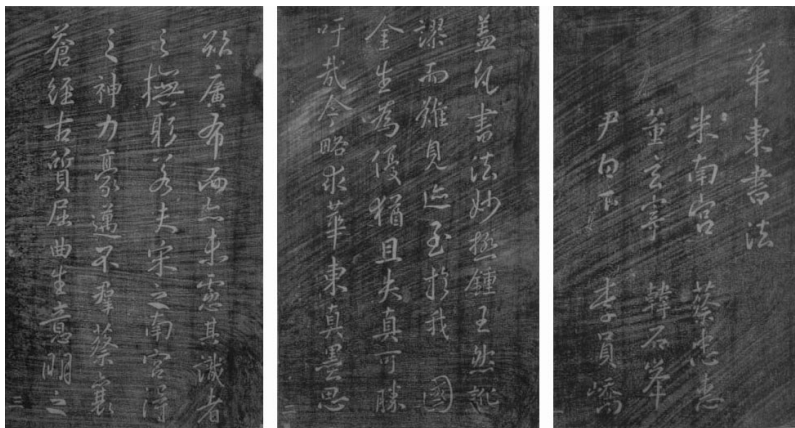 華東書法
米南宮 蔡忠惠
董玄宰 韓石峯
尹白下 李員嶠
一
蓋凡書法妙極鍾王然訛
謬而難見迹至於我 國
金生為優猶且失真可勝
吁哉今略求華東真墨思
二
欲廣布而亦未慮其譏者
之撫 若夫宋之南宮得
之神力豪邁不羣蔡襄
蒼經古質屈曲生意明之
三